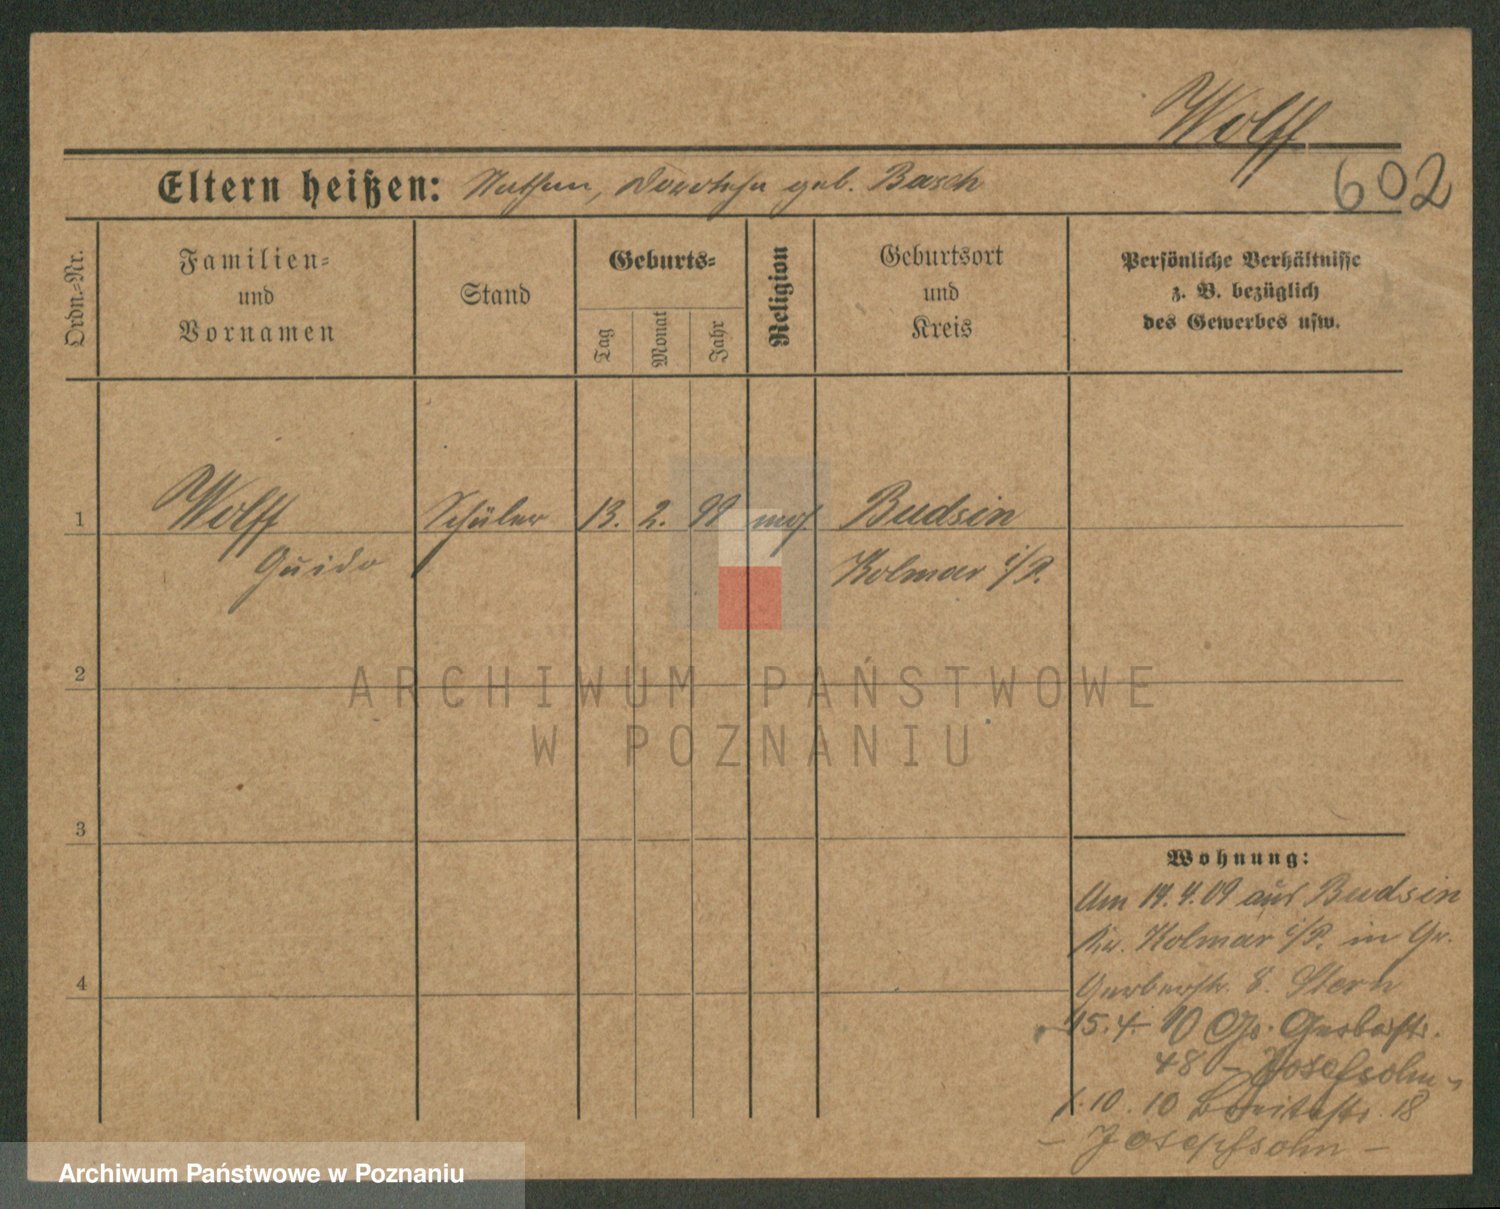 Wolff
602
Eltern heißen: Nathan, Dorothea geb. Basch
Ordn.-Nr.
Familien-
und
Vornamen
Stand
Geburts-
Tag
Monat
Jahr
Religion
Geburtsort
und
Kreis
Persönliche Verhältnisse
z. B. bezüglich
des Gewerbes usw.
1
Wolff
Guido
Schüler
13. 2. 99
mos
Budsin
Kolmar i/P.
2
3
4
Wohnung:
Am 14.4.09 aus Budsin
Kr. Kolmar i/P. in Gr.
Gerberstr. 8. Stern
15.4. 10 Gr. Gerberstr.
48 - Josefsohn -
1.10.10 Breitestr. 18
- Josepfsohn -
ARCHIWUM PAŃSTWOWE
W POZNANIU
Archiwum Państwowe w Poznaniu